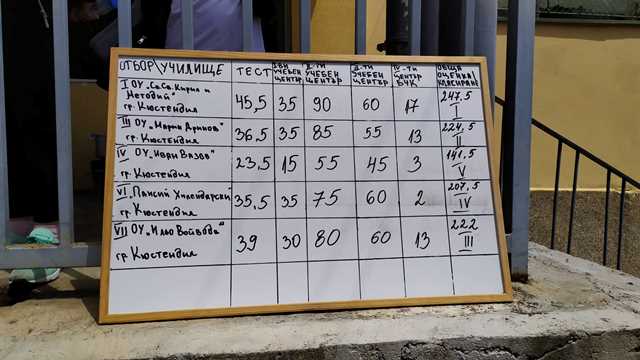 ОТБОР\УЧИЛИЩЕ ТЕСТ I-ВИ УЧЕБЕН ЦЕНТЪР II-РИ УЧЕБЕН ЦЕНТЪР III-ТИ УЧЕБЕН ЦЕНТЪР IV-ТИ ЦЕНТЪР БЧК ОБЩА ОЦЕНКА/ КЛАСИРАНЕ
I ОУ „Св.Св. Кирил и
Методий"
гр. Кюстендил 45,5 35 90 60 17 247,5 I
III ОУ „Марин Дринов"
гр. Кюстендил 36,5 35 85 55 13 224,5 II
IV ОУ „Иван Вазов"
гр. Кюстендил 23,5 15 55 45 3 141,5 V
VI „Паисий Хилендарски"
гр. Кюстендил 35,5 35 75 60 2 207,5 IV
VII ОУ „Ильо Войвода"
гр. Кюстендил 39 30 80 60 13 222 III